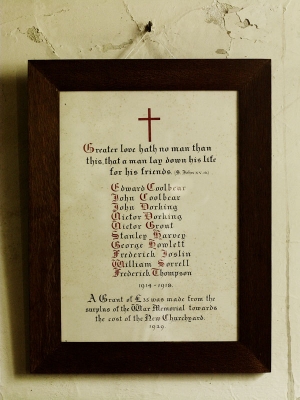 Greater love hath no man than
this, that a man lay down his life
for his friends. (S. John xv. 13)
Edward Coolbear
John Coolbear
John Dorking
Victor Dorking
Victor Grout
Stanley Harvey
George Howlett
Frederick Joslin
William Sorrell
Frederick Thompson
1914-1918.
A Grant of £35 was made from the
surplus of the War Memorial towards
the cost of the New Churchyard.
1929.